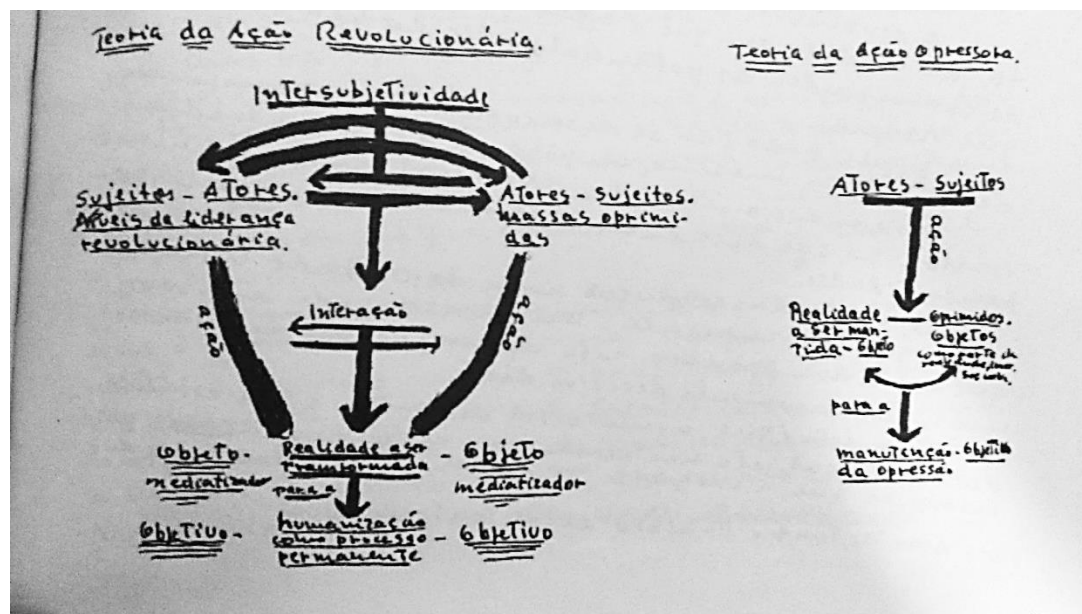 Teoria da Ação Revolucionária.
Intersubjetividade
Sujeitos - Atores.
revolucionária.
Atores - Sujeitos.
massas oprimi-
das
ação
Interação
ação
Objeto-
mediatizador
Realidade a ser
transformada
- Objeto
mediatizador
para a
Objetivo-
humanização
como processo
permanente
- Objetivo
Teoria da Ação Opressora.
Atores - Sujeitos
ação
Realidade
a ser man-
tida - Objeto
Oprimidos.
Objetos
como parte da
para a
manutenção - Objetivo
da opressão